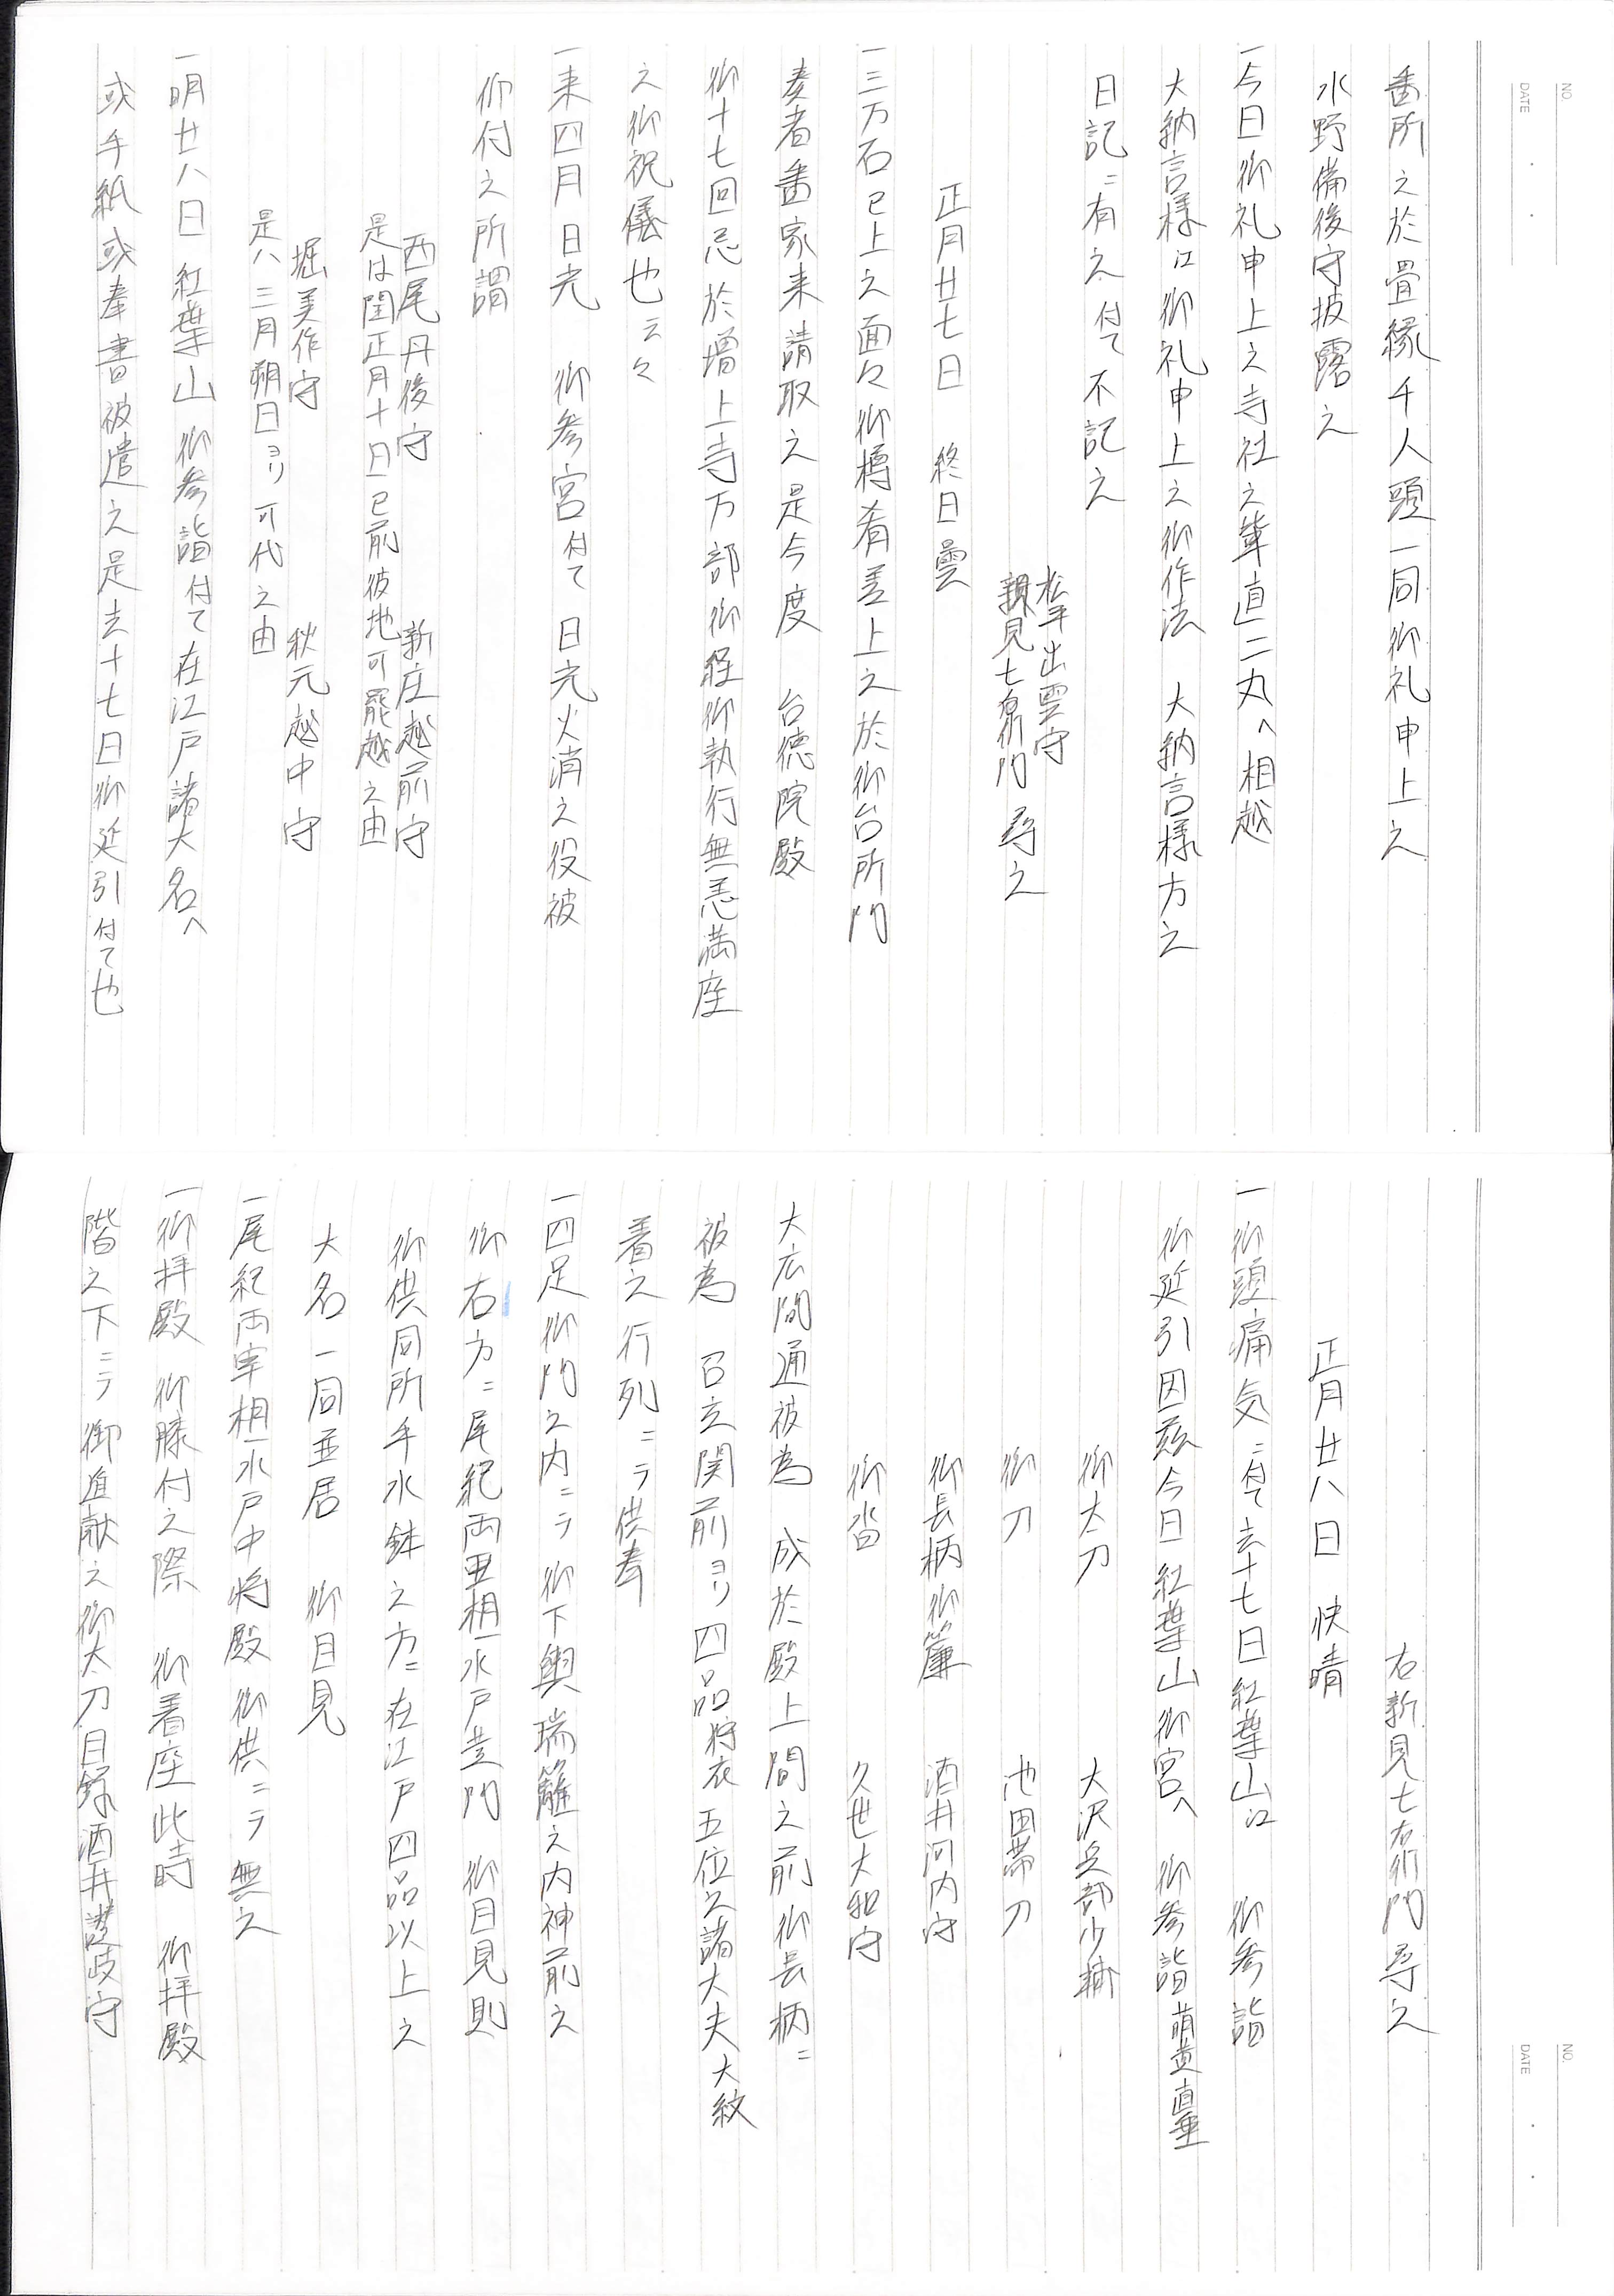 NO.
DATE
番所之於畳縁千人頭一同御礼申上之
水野備後守披露之
一今日御礼申上之寺社之輩直二丸へ相越
大納言様江御礼申上之御作法 大納言様方之
日記ニ有之付て不記之
松平出雲守
親見七右衛門 尋之
正月廿七日 終日曇
一三万石已上之面々御樽肴差上之於御台所門
奏者番家来請取之是今度 台徳院殿
御十七回忌於増上寺万部御経御執行無恙満座
之御祝儀也云々
一来四月日光 御参宮付て日光火消之役被
仰付之所謂
西尾丹後守 新庄越前守
是は閏正月十日已前彼地可罷越之由
堀美作守 秋元越中守
是ハ三月朔日ヨリ可代之由
一明廿八日紅葉山御参詣付て在江戸諸大名へ
或手紙或奉書被遣之是去十七日御延引付て也
NO.
DATE
右新見七右衛門尋之
正月廿八日 快晴
一御頭痛気ニ付て去十七日紅葉山江 御参詣
御延引因茲今日紅葉山御宮へ 御参詣萌黄直垂
御太刀 大沢兵部少輔
御刀 池田帯刀
御長柄御簾 酒井河内守
御沓 久世大和守
大広間通被為 成於殿上間之前御長柄ニ
被為 召玄関前ヨリ四品狩衣五位之諸大夫大紋
着之行列ニテ供奉
一四足御門之内ニテ御下輿瑞籬之内神前之
御右方ニ尾紀両亜相水戸黄門 御目見則
御供同所手水鉢之方ニ在江戸四品以上之
大名一同並居 御目見
一尾紀両宰相水戸中将殿御供ニテ無之
一御拝殿 御膝付之際 御着座此時 御拝殿
階之下ニテ御進献之御太刀目録酒井讃岐守